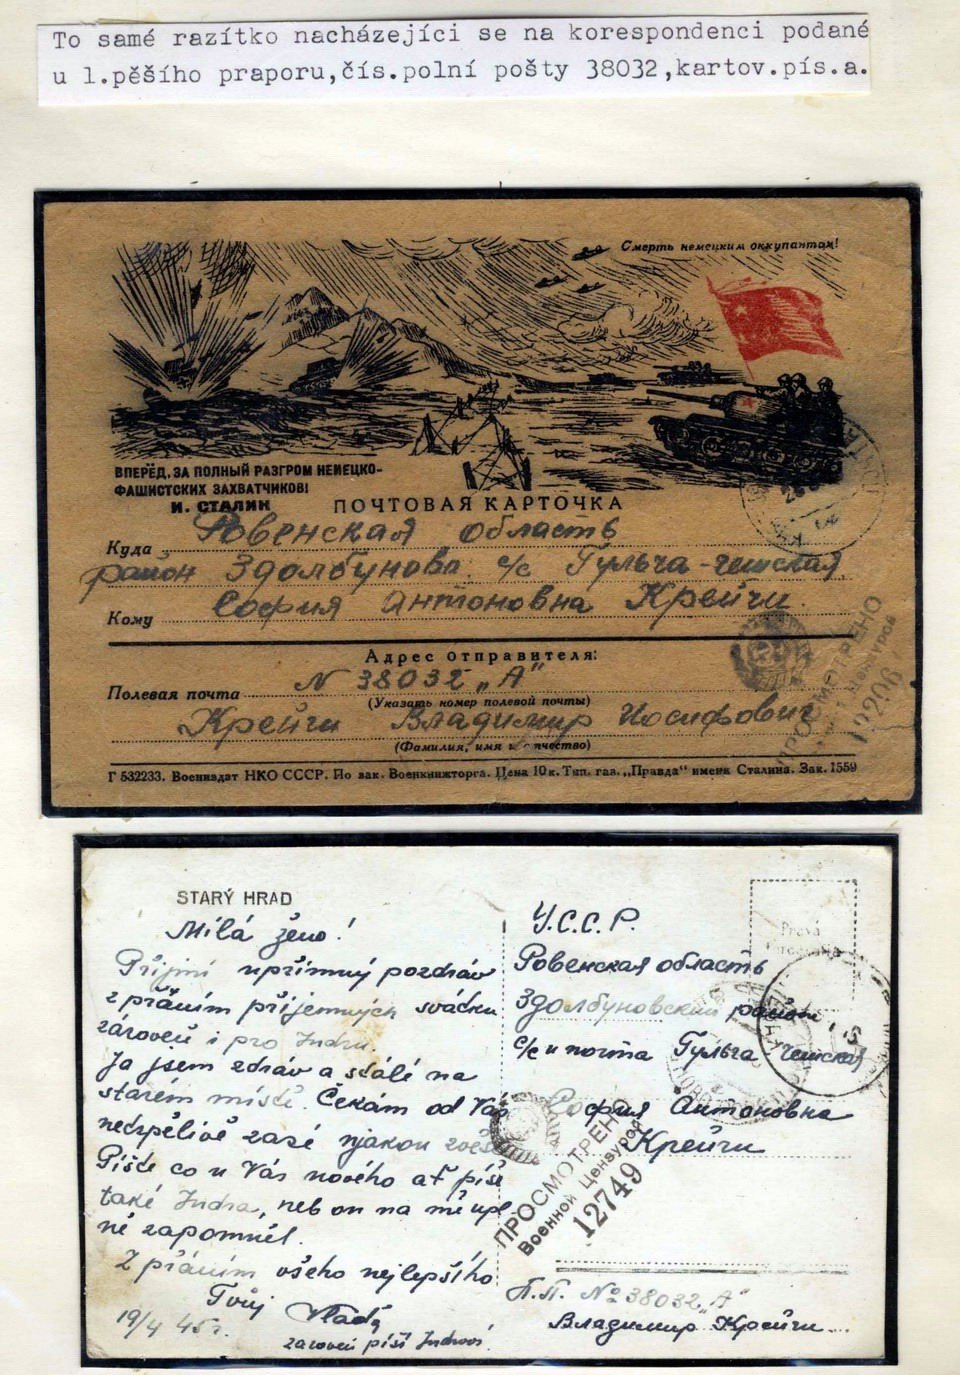 To samé razítko nacházejíci se na korespondenci podané
u 1.pěšího praporu,čís.polní pošty 38032,kartov.pís.a.
Смерть немецким оккупантам!
ВПЕРЁД, ЗА ПОЛНЫЙ РАЗГРОМ НЕМЕЦКО-
ФАШИСТСКИХ ЗАХВАТЧИКОВ!
И. СТАЛИН
ПОЧТОВАЯ КАРТОЧКА
Куда Ровенская область
район Здолбунов с/с Гульча-чешская
Кому София Антоновна Крейчи
Адрес отправителя:
Полевая почта N 38032 „А"
(Указать номер полевой почты)
Крейчи Владимир Иосифович
(Фамилия, имя и отчество)
ПРОСМОТРЕНО
Военной Цензурой
12206
Г 532233. Воениздат НКО СССР. По зак. Военкнижторга. Цена 10 к. Тип. газ. „Правда" имени Сталина. Зак. 1559
STARÝ HRAD
Milá ženo!
Přijmi upřímný pozdráv
z přáním příjemných svátku
zároveň i pro Indru.
Ja jsem zdráv a stálé na
starém místě. Čekám od Vás
netrpělivě zasé njakou zvěs
Pište co u Vás nového ať píše
také Indra, neb on na mě upl-
ně zapomněl.
Z přáním všeho nejlepšího
Tvůj Vladá
19/4 45 r.
zaroveň píši Indrovi
У.С.С.Р.
Ровенская область
Здолбуновский район,
с/с и почта Гульча Чешская
София Антоновна
Крейчи
Pravá
ПРОСМОТРЕНО
Военной Цензурой
12749
П.П. № 38032 „А"
Владимир Крейчи